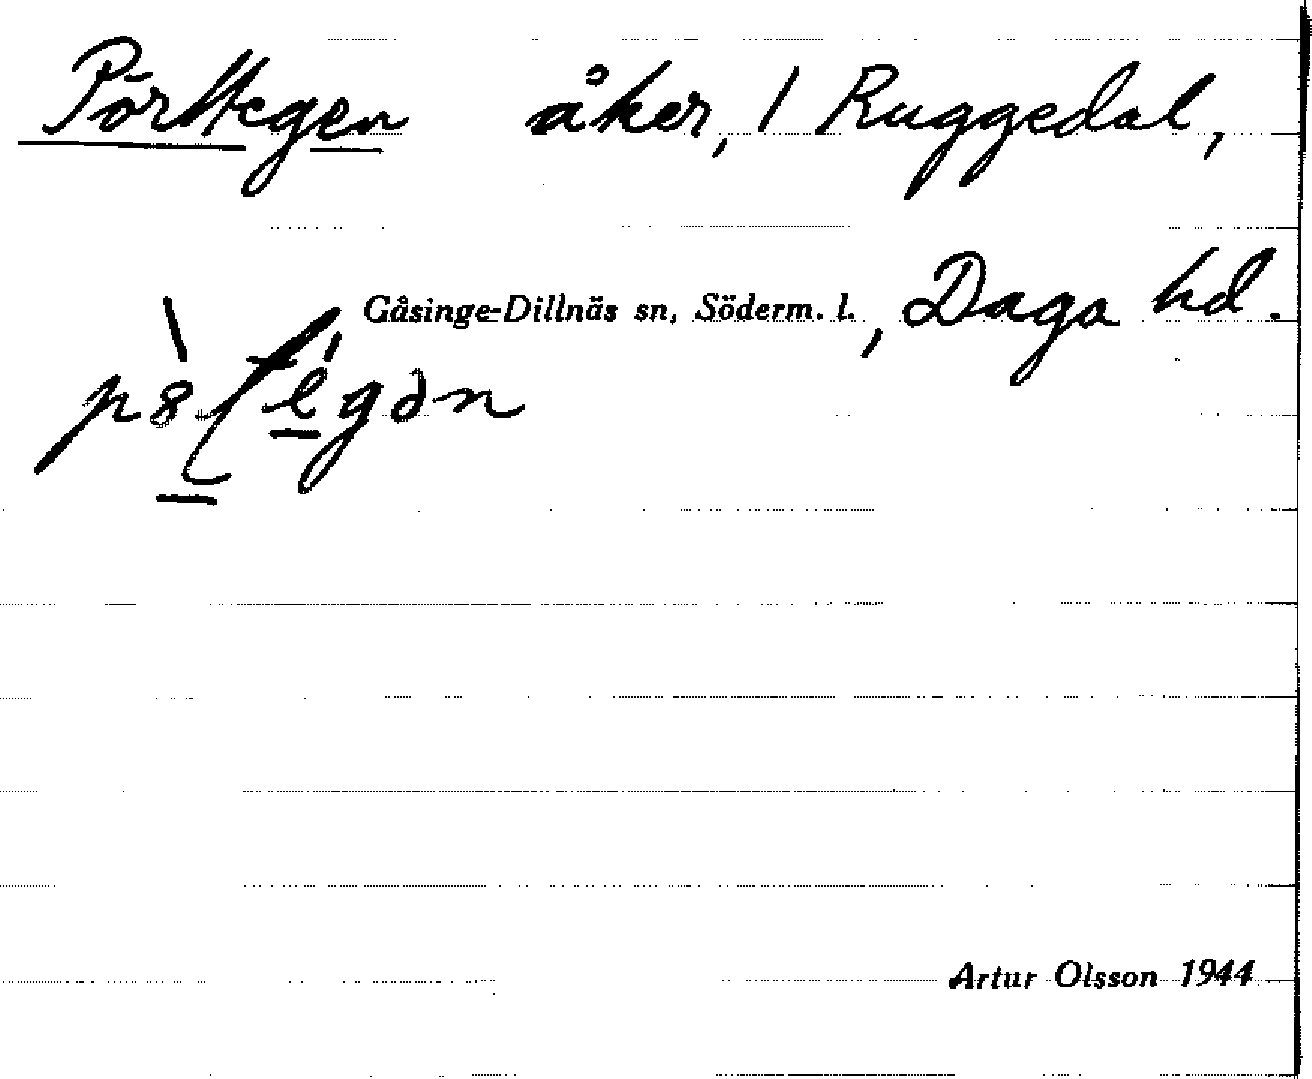 Pörttegen åker, 1 Ruggedal,
Gåsinge-Dillnäs sn, Söderm. l., Daga hd.
Artur Olsson 1944